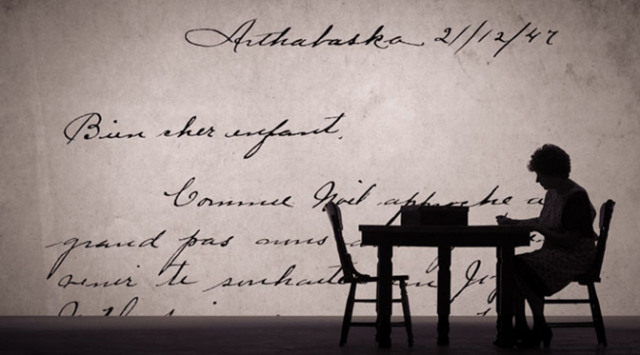 Arthabaska 21/12/47
Bien cher enfant,
Comme Noël approche a
grand pas nous
venir te souhaite